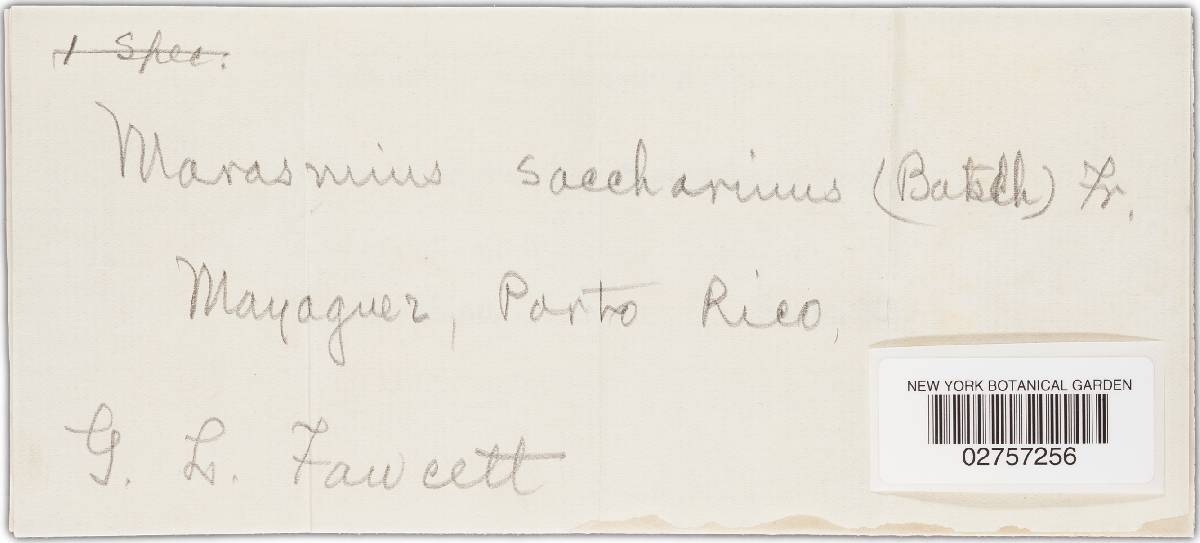 1 Spec.
Marasmius saccharinus (Batsch) Fr.
Mayaguez, Porto Rico,
G. L. Fawcett
NEW YORK BOTANICAL GARDEN
02757256